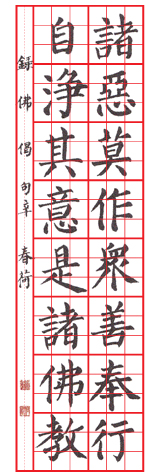 諸惡莫作眾善奉行
自淨其意是諸佛教
錄佛偈句辛春荷